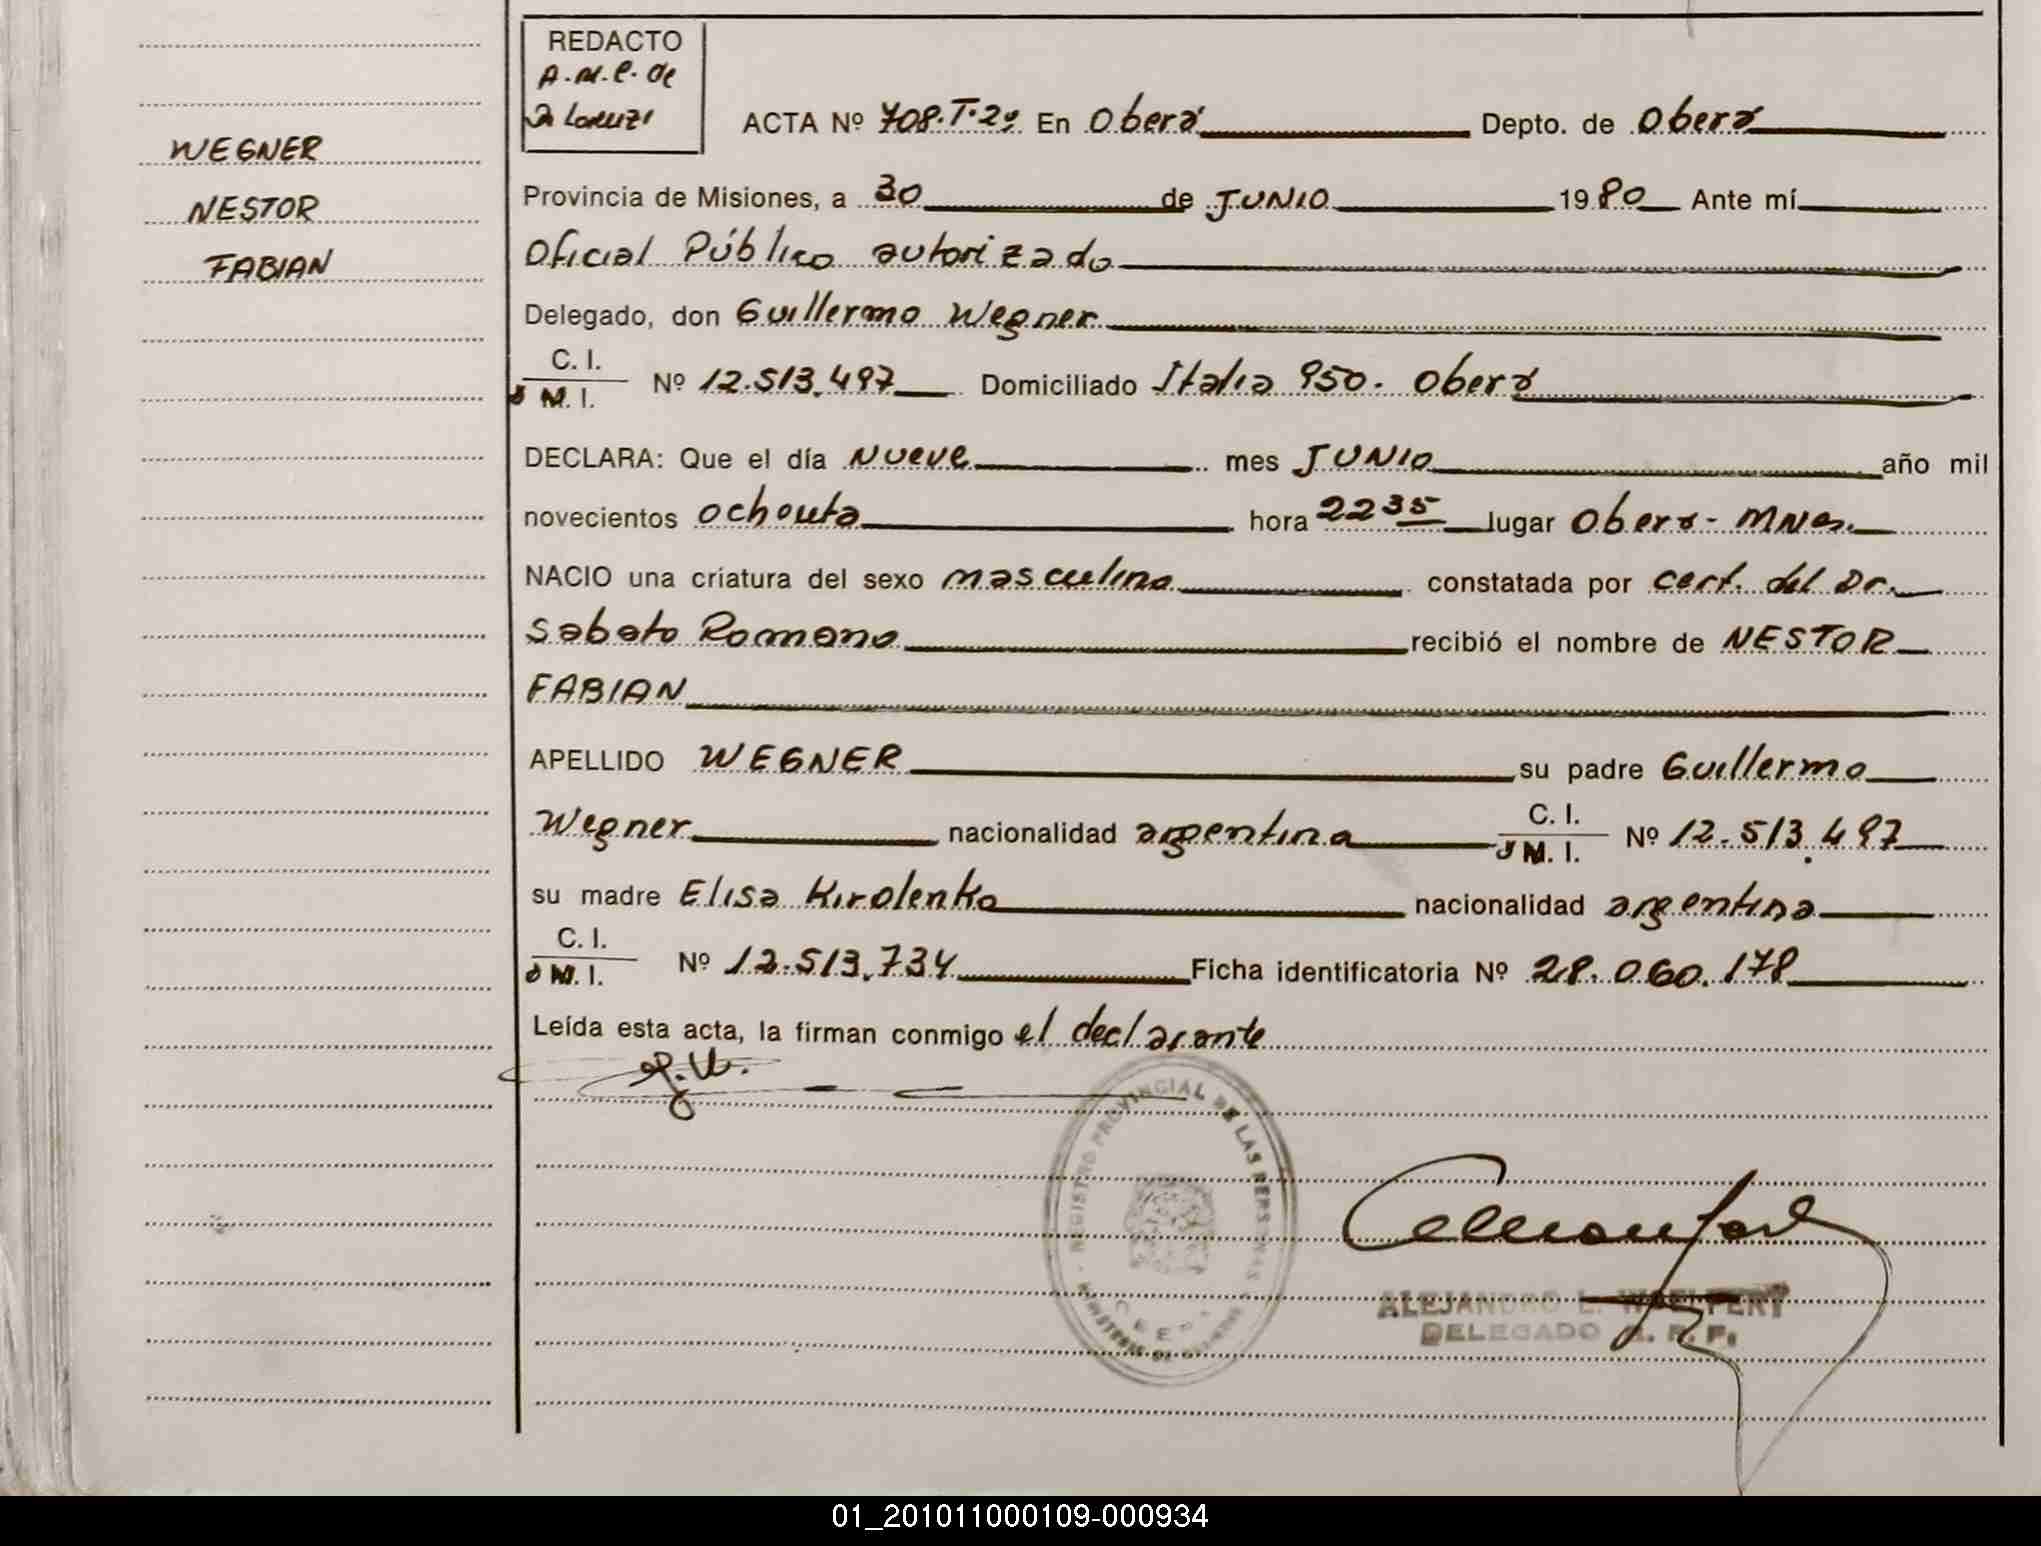 REDACTO
A.M.C. de
De Lorenzi
WEGNER
NESTOR
FABIAN
ACTA Nº 708.T.2º En Oberá Depto. de Oberá
Provincia de Misiones, a 30 de JUNIO 1980 Ante mí
Oficial Público autorizado
Delegado, don Guillermo Wegner
C. I.
ó M. I. Nº 12.513.497 Domiciliado Italia 950. Oberá
DECLARA: Que el día Nueve mes JUNIO año mil
novecientos ochenta hora 22 35 lugar Oberá - Mnes.
NACIO una criatura del sexo masculino constatada por cert. del Dr.
Sabato Romano recibió el nombre de NESTOR
FABIAN
APELLIDO WEGNER su padre Guillermo
Wegner nacionalidad argentina C. I.
ó M. I. Nº 12.513.497
su madre Elisa Kirolenko nacionalidad argentina
C. I.
ó M. I. Nº 12.513.734 Ficha identificatoria Nº 28.060.178
Leída esta acta, la firman conmigo el declarante
G.W.
REGISTRO PROVINCIAL DE LAS PERSONAS
ALEJANDRO L. WOELFERT
DELEGADO R. P. P.
01_201011000109-000934